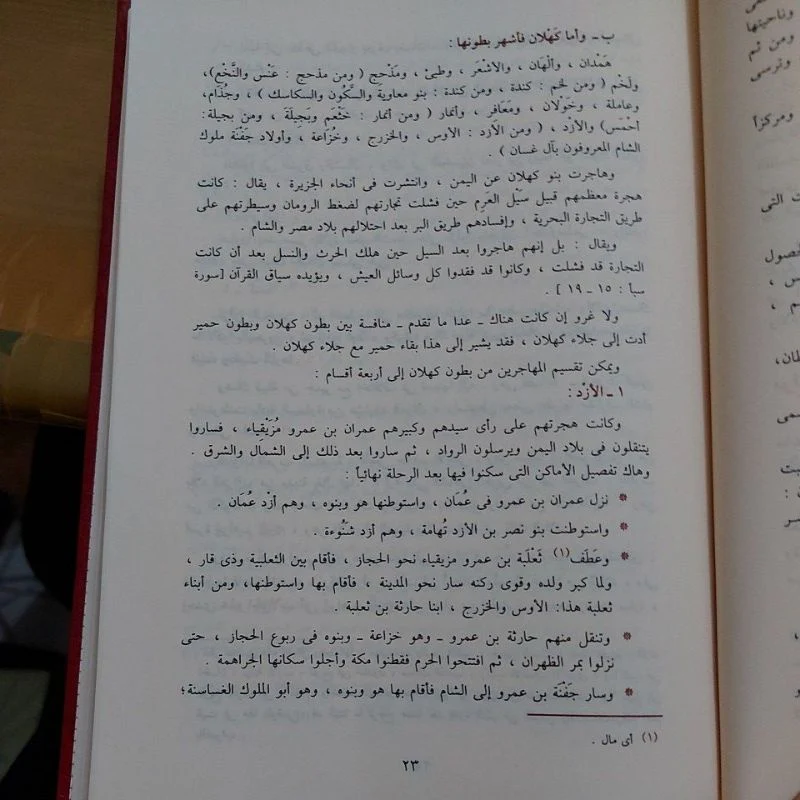 ب ـ وأما كَهْلان فأشهر بطونها :
هَمْدان ، وألهَان ، والأشْعَر ، وطيئ ، ومَذْحج ( ومن مذحج : عَنْس والنَّخْع)،
ولَخْم ( ومن لخم : كندة ، ومن كندة : بنو معاوية والسَّكُون والسكاسك ) ، وجُذَام،
وعاملة ، وخَوْلان ، ومَعَافر ، وأنمار ( ومن أنمار : خَثْعَم وبَجِيلَة ، ومن بجيلة:
أحْمَس) والأزْد ، ( ومن الأزد : الأوس ، والخزرج ، وخُزَاعة ، وأولاد جَفْنَة ملوك
الشام المعروفون بآل غسان ) .
وهاجرت بنو كهلان عن اليمن ، وانتشرت فى أنحاء الجزيرة ، يقال : كانت
هجرة معظمهم قبيل سَيْل العَرِم حين فشلت تجارتهم لضغط الرومان وسيطرتهم على
طريق التجارة البحرية ، وإفسادهم طريق البر بعد احتلالهم بلاد مصر والشام .
ويقال : بل إنهم هاجروا بعد السيل حين هلك الحرث والنسل بعد أن كانت
التجارة قد فشلت ، وكانوا قد فقدوا كل وسائل العيش ، ويؤيده سياق القرآن [سورة
سبأ : ١٥ ـ ١٩ ] .
ولا غرو إن كانت هناك ـ عدا ما تقدم ـ منافسة بين بطون كهلان وبطون حمير
أدت إلى جلاء كهلان ، فقد يشير إلى هذا بقاء حمير مع جلاء كهلان .
ويمكن تقسيم المهاجرين من بطون كهلان إلى أربعة أقسام :
١ ـ الأزْد :
وكانت هجرتهم على رأى سيدهم وكبيرهم عمران بن عمرو مُزَيْقِياء ، فساروا
يتنقلون فى بلاد اليمن ويرسلون الرواد ، ثم ساروا بعد ذلك إلى الشمال والشرق .
وهاك تفصيل الأماكن التى سكنوا فيها بعد الرحلة نهائياً :
* نزل عمران بن عمرو فى عُمَان ، واستوطنها هو وبنوه ، وهم أزْد عُمَان .
* واستوطنت بنو نصر بن الأزد تُهامة ، وهم أزد شَنُوءة .
* وعَطَف(١) ثَعْلَبة بن عمرو مزيقياء نحو الحجاز ، فأقام بين الثعلبية وذى قار ،
ولما كبر ولده وقوى ركنه سار نحو المدينة ، فأقام بها واستوطنها، ومن أبناء
ثعلبة هذا: الأوس والخزرج ، ابنا حارثة بن ثعلبة .
* وتنقل منهم حارثة بن عمرو ـ وهو خزاعة ـ وبنوه فى ربوع الحجاز ، حتى
نزلوا بمر الظهران ، ثم افتتحوا الحرم فقطنوا مكة وأجلوا سكانها الجراهمة .
* وسار جَفْنَة بن عمرو إلى الشام فأقام بها هو وبنوه ، وهو أبو الملوك الغساسنة؛
(١) أى مال .
٢٣
وناحيتها
ومن ثم
وترسى
ومركزاً
ت التى